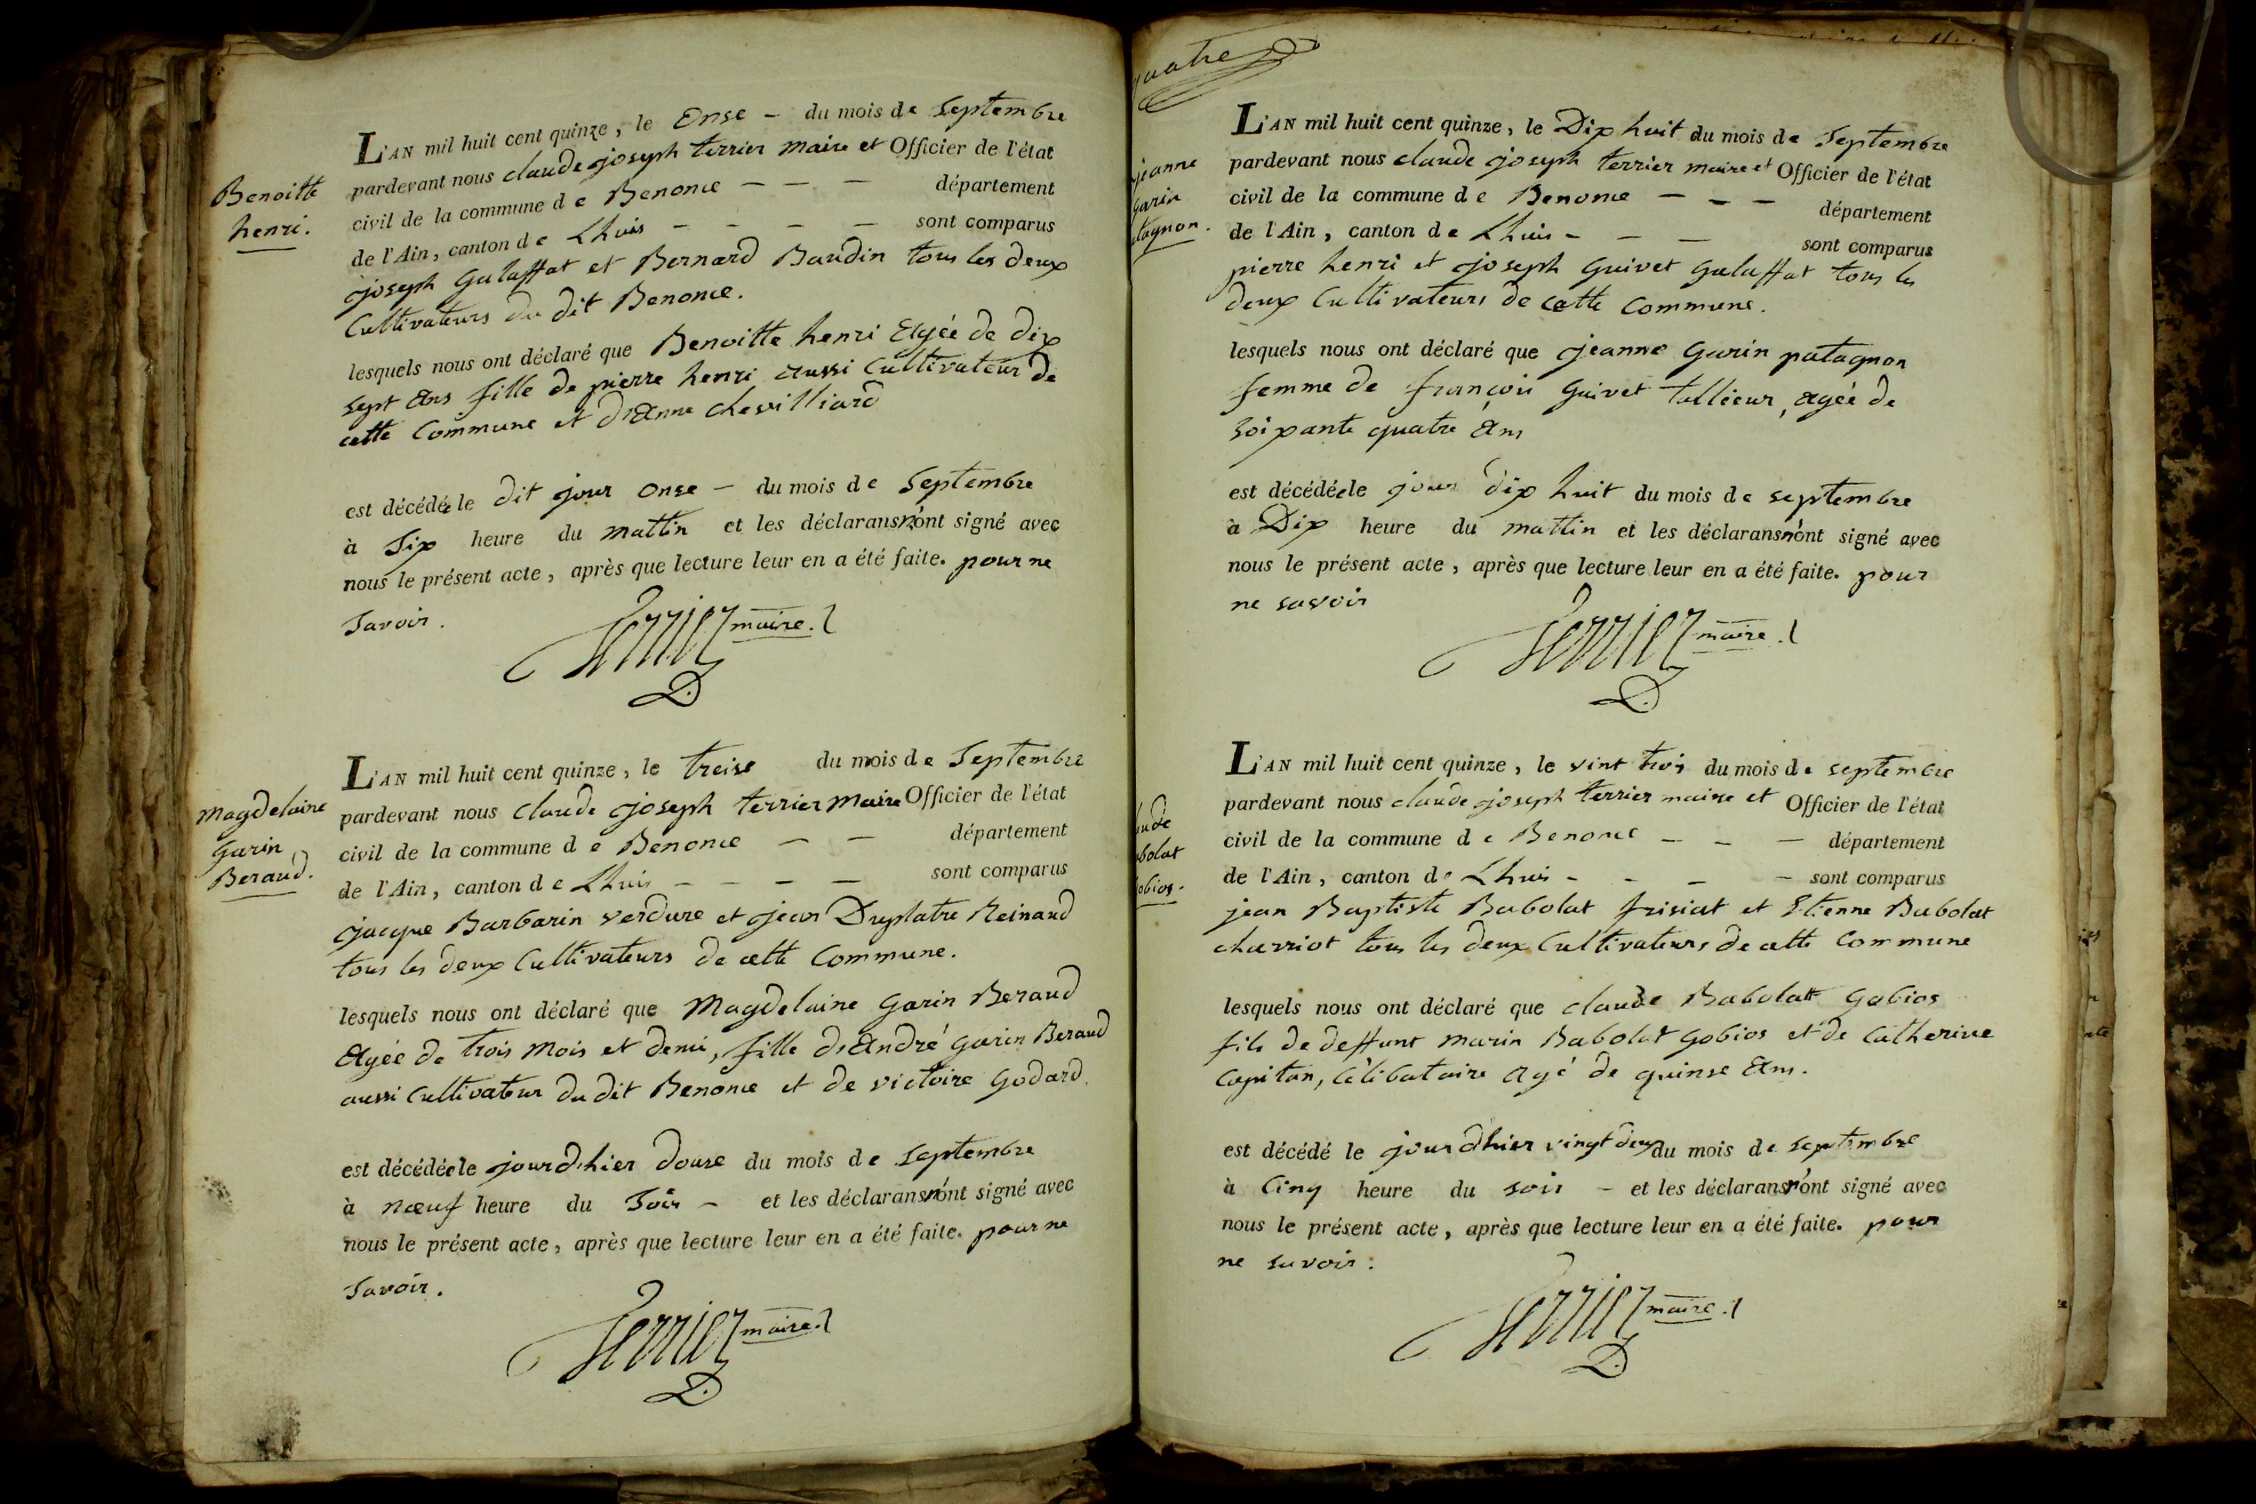 Benoitte
henri.
L'AN mil huit cent quinze, le Onse - du mois de Septembre
pardevant nous claude joseph terrier maire et Officier de l'état
civil de la commune de Benonce - - - département
de l'Ain, canton de Lhuis - - - - sont comparus
joseph Galaffat et Bernard Baudin tous les deux
Cultivateurs du dit Benonce.
lesquels nous ont déclaré que Benoitte henri Agée de dix
sept Ans fille de pierre henri aussi Cultivateur de
cette Commune et d'Anne chevilliard
est décédée le dit jour onse - du mois de Septembre
à Six heure du mattin et les déclarans n'ont signé avec
nous le présent acte, après que lecture leur en a été faite. pour ne
Savoir.
Terrier maire.
Magdelaine
Garin
Beraud.
L'AN mil huit cent quinze, le treise du mois de Septembre
pardevant nous claude joseph terrier Maire Officier de l'état
civil de la commune de Benonce - - département
de l'Ain, canton de Lhuis - - - - sont comparus
jacque Barbarin verdure et jean Duplatre Reinaud
tous les deux Cultivateurs de cette Commune.
lesquels nous ont déclaré que Magdelaine Garin Beraud
Agée de trois Mois et demi, fille d'André Garin Beraud
aussi Cultivateur du dit Benonce et de victoire Godard.
est décédée le jour d'hier douse du mois de Septembre
à nœuf heure du Soir - et les déclarans n'ont signé avec
nous le présent acte, après que lecture leur en a été faite. pour ne
Savoir.
Terrier maire.
quatre
jeanne
Garin
tagnon.
L'AN mil huit cent quinze, le Dix huit du mois de Septembre
pardevant nous claude joseph terrier maire et Officier de l'état
civil de la commune de Benonce - - - département
de l'Ain, canton de Lhuis - - - sont comparus
pierre henri et joseph Guivet Galaffat tous les
deux Cultivateurs de cette Commune.
lesquels nous ont déclaré que jeanne Garin patagnon
femme de françois Guivet tallieur, agée de
soixante quatre Ans
est décédée le jour dix huit du mois de septembre
à Dix heure du mattin et les déclarans n'ont signé avec
nous le présent acte, après que lecture leur en a été faite. pour
ne savoir
Terrier maire.
ude
bolat
obios.
L'AN mil huit cent quinze, le vint trois du mois de septembre
pardevant nous claude joseph terrier maire et Officier de l'état
civil de la commune de Benonce - - - département
de l'Ain, canton de Lhuis - - - - sont comparus
jean Baptiste Babolat frisiat et Etienne Babolat
charriot tous les deux Cultivateurs de cette Commune
lesquels nous ont déclaré que claude Babolatt Gobios
fils de deffunt marin Babolat Gobios et de Catherine
Capitan, Célibataire Agé de quinse Ans.
est décédé le jour d'hier vingt deux du mois de septembre
à Cinq heure du soir - et les déclarans n'ont signé avec
nous le présent acte, après que lecture leur en a été faite. pour
ne savoir.
Terrier maire.